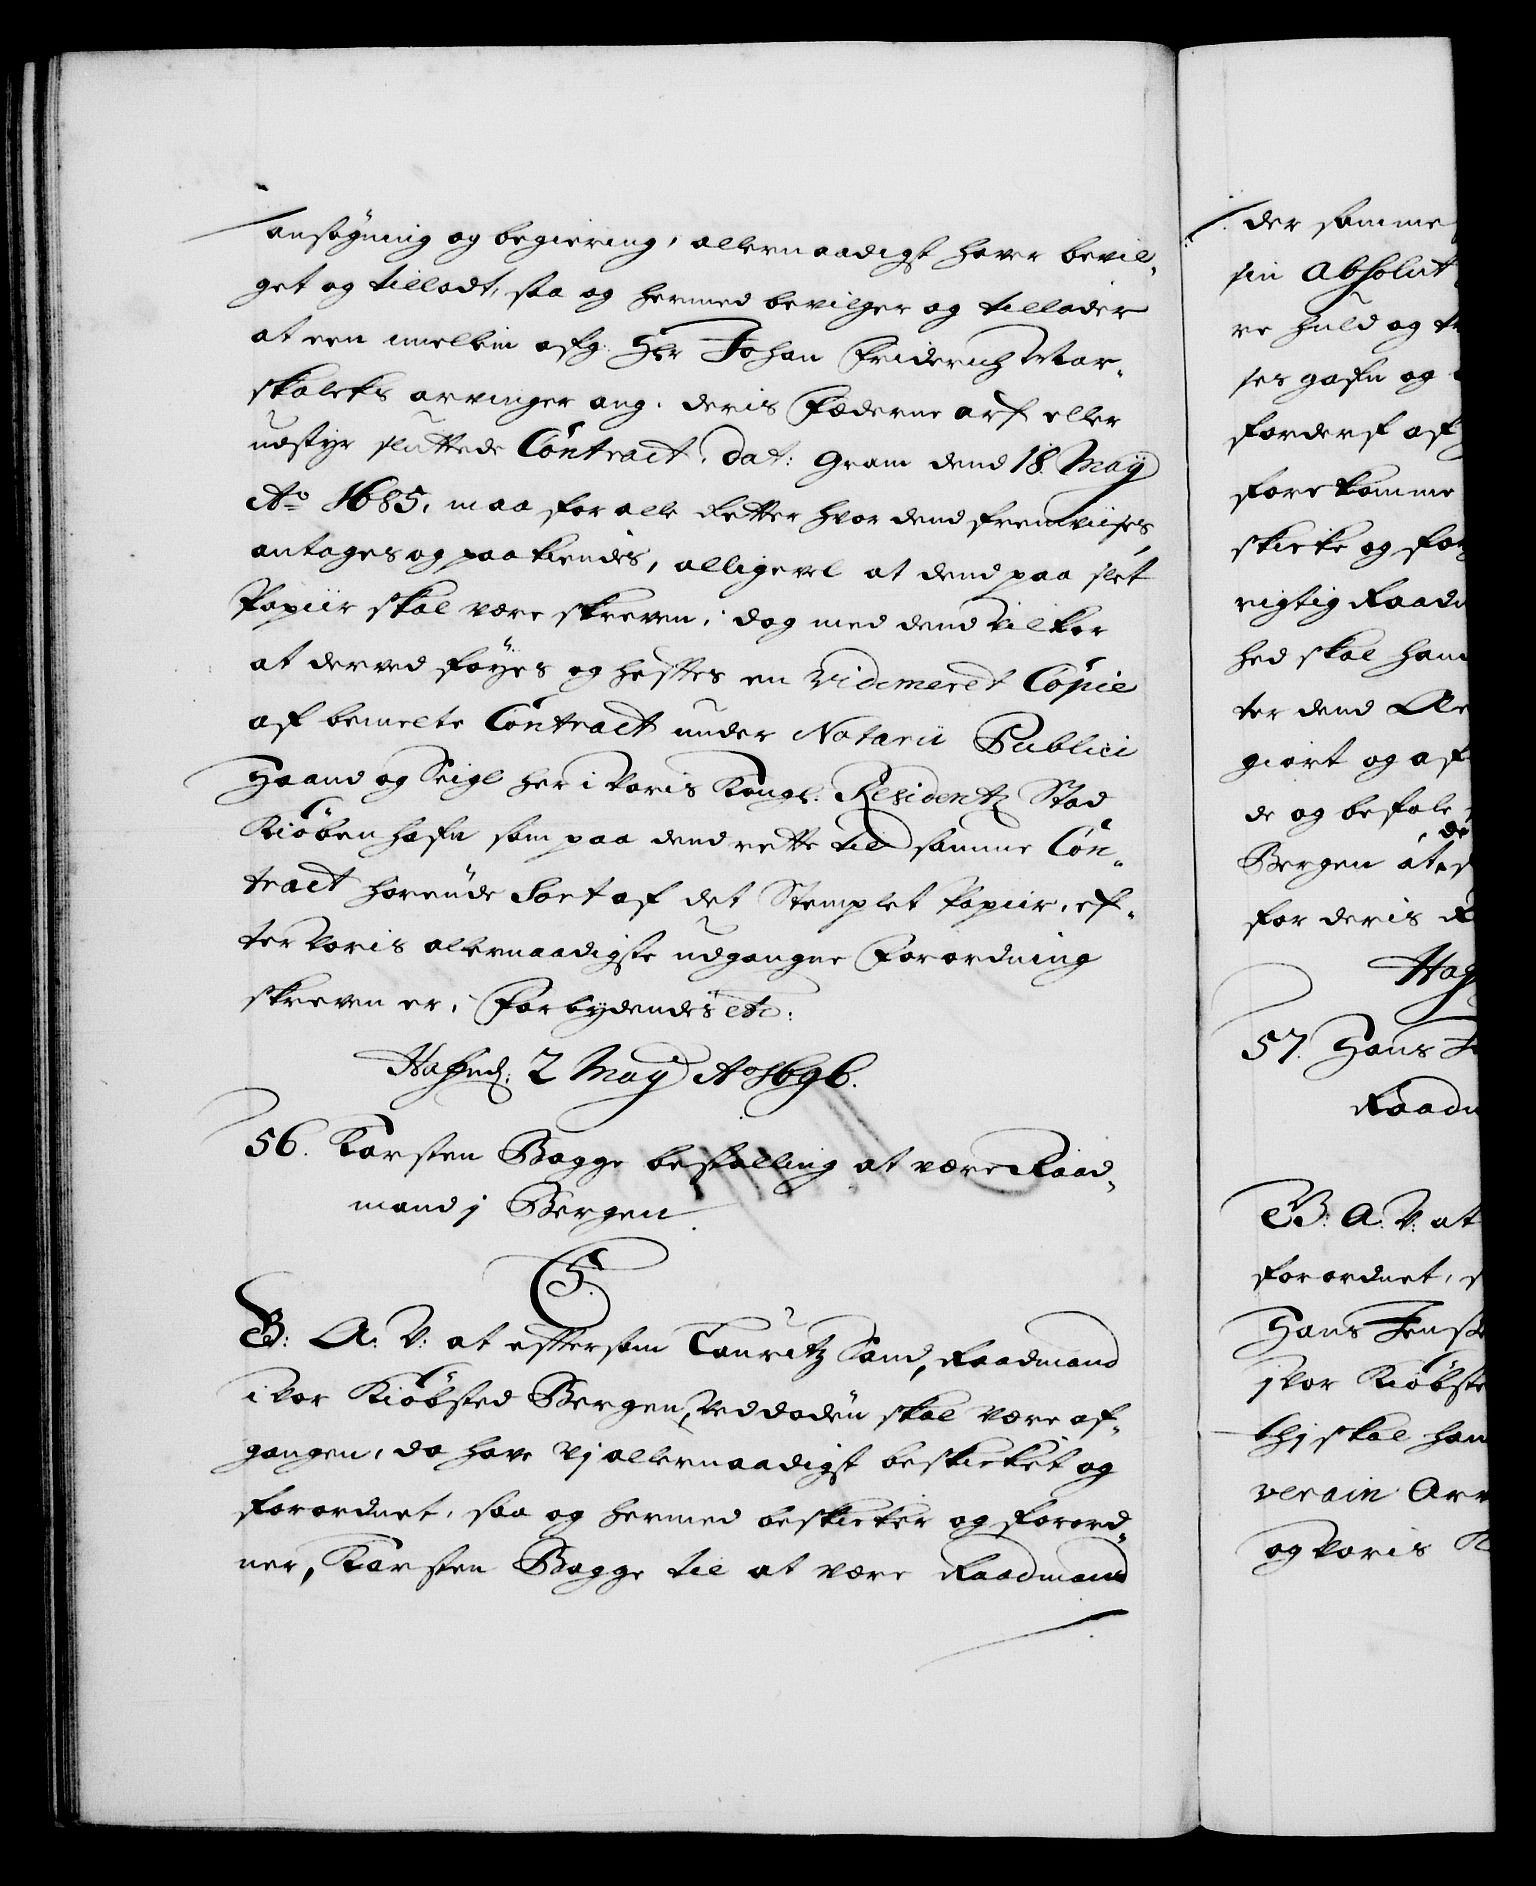 ansøgning og begiering, allernaadigst haver bevil-
get og tilladt, saa og hermed bevilger og tillader
at een imellem afg: Hr Johan Friderich Mar-
skalcks arvinger ang. deris Fæderne arf eller
udstyr sluttede Contract, dat: Gram dend 18. May
Ao 1685, maa for alle Retter hvor dend fremviises,
antages og paakiendes, alligevel at dend paa slet
Papiir skal være skreven, dog med dend vilkor
at derved føyes og heftes en Videmeret Copie
af bemelte Contract under Notarii Publici
Haand og Seigl her i Voris Kongl. Residentz Stad
Kiøbenhafn som paa dend rette til samme Con-
tract hørende Sort af det Stemplet Papiir, ef-
ter Voris allernaadigste udgangne Forordning
skreven er, Forbydendes etc:
Hafniæ: 2 May Ao 1696.
56. Karsten Bagge bestalling at være Raad-
mand j Bergen.
C5.
B: A: V: at eftersom Lauritz Sand, Raadmand
i Vor Kiøbsted Bergen, ved døden skal være af-
gangen, da have Vj allernaadigst beskicket og
forordnet, saa og hermed beskicker og forord-
ner, Karsten Bagge til at være Raadmand
der samme
sin Absolut
re huld og
ses gafn og
forderf af
forekomme
skicke og
rigtig Raad
hed skal
ter dend
giort og af
de og befale
Bergen at
for deris
57. Hans
Raad
B: A: V: at
forordnet,
Hans Jens
j Vor Kiøbste
thj skal han
verain Arv
og Voris